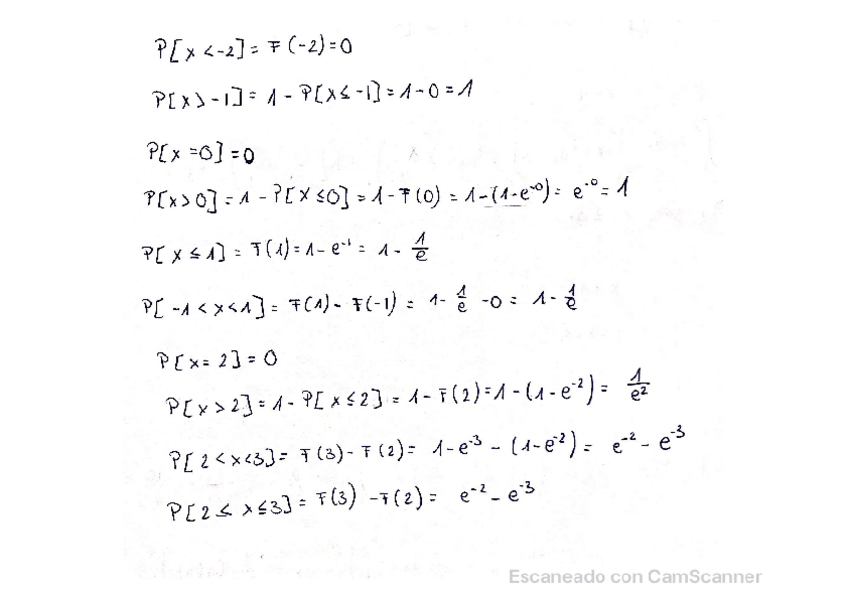 P[x<-2] = F(-2)=0
P[x>-1] = 1 - P[x≤-1] = 1-0 = 1
P[x=0] = 0
P[x>0] = 1 - P[x≤0] = 1-F(0) = 1-(1-e⁻⁰) = e⁻⁰ = 1
P[x≤1] = F(1) = 1-e⁻¹ = 1 - 1/e
P[-1<x<1] = F(1) - F(-1) = 1 - 1/e - 0 = 1 - 1/e
P[x=2] = 0
P[x>2] = 1 - P[x≤2] = 1-F(2) = 1-(1-e⁻²) = 1/e²
P[2<x<3] = F(3) - F(2) = 1-e⁻³ - (1-e⁻²) = e⁻² - e⁻³
P[2≤x≤3] = F(3) - F(2) = e⁻² - e⁻³
Escaneado con CamScanner